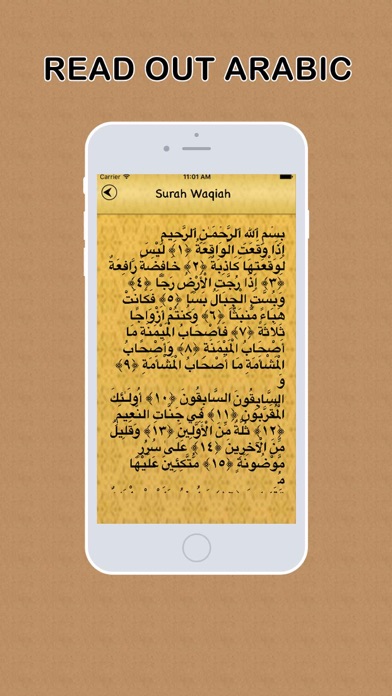 READ OUT ARABIC
Carrier 11:01 AM
Surah Waqiah
بِسْمِ اللَّهِ الرَّحْمَـٰنِ الرَّحِيمِ
إِذَا وَقَعَتِ الْوَاقِعَةُ ﴿١﴾ لَيْسَ
لِوَقْعَتِهَا كَاذِبَةٌ ﴿٢﴾ خَافِضَةٌ رَّافِعَةٌ
﴿٣﴾ إِذَا رُجَّتِ الْأَرْضُ رَجًّا ﴿٤﴾
وَبُسَّتِ الْجِبَالُ بَسًّا ﴿٥﴾ فَكَانَتْ
هَبَاءً مُّنبَثًّا ﴿٦﴾ وَكُنتُمْ أَزْوَاجًا
ثَلَاثَةً ﴿٧﴾ فَأَصْحَابُ الْمَيْمَنَةِ مَا
أَصْحَابُ الْمَيْمَنَةِ ﴿٨﴾ وَأَصْحَابُ
الْمَشْأَمَةِ مَا أَصْحَابُ الْمَشْأَمَةِ ﴿٩﴾
وَ
السَّابِقُونَ السَّابِقُونَ ﴿١٠﴾ أُولَـٰئِكَ
الْمُقَرَّبُونَ ﴿١١﴾ فِي جَنَّاتِ النَّعِيمِ
﴿١٢﴾ ثُلَّةٌ مِّنَ الْأَوَّلِينَ ﴿١٣﴾ وَقَلِيلٌ
مِّنَ الْآخِرِينَ ﴿١٤﴾ عَلَىٰ سُرُرٍ
مَّوْضُونَةٍ ﴿١٥﴾ مُّتَّكِئِينَ عَلَيْهَا
مُ